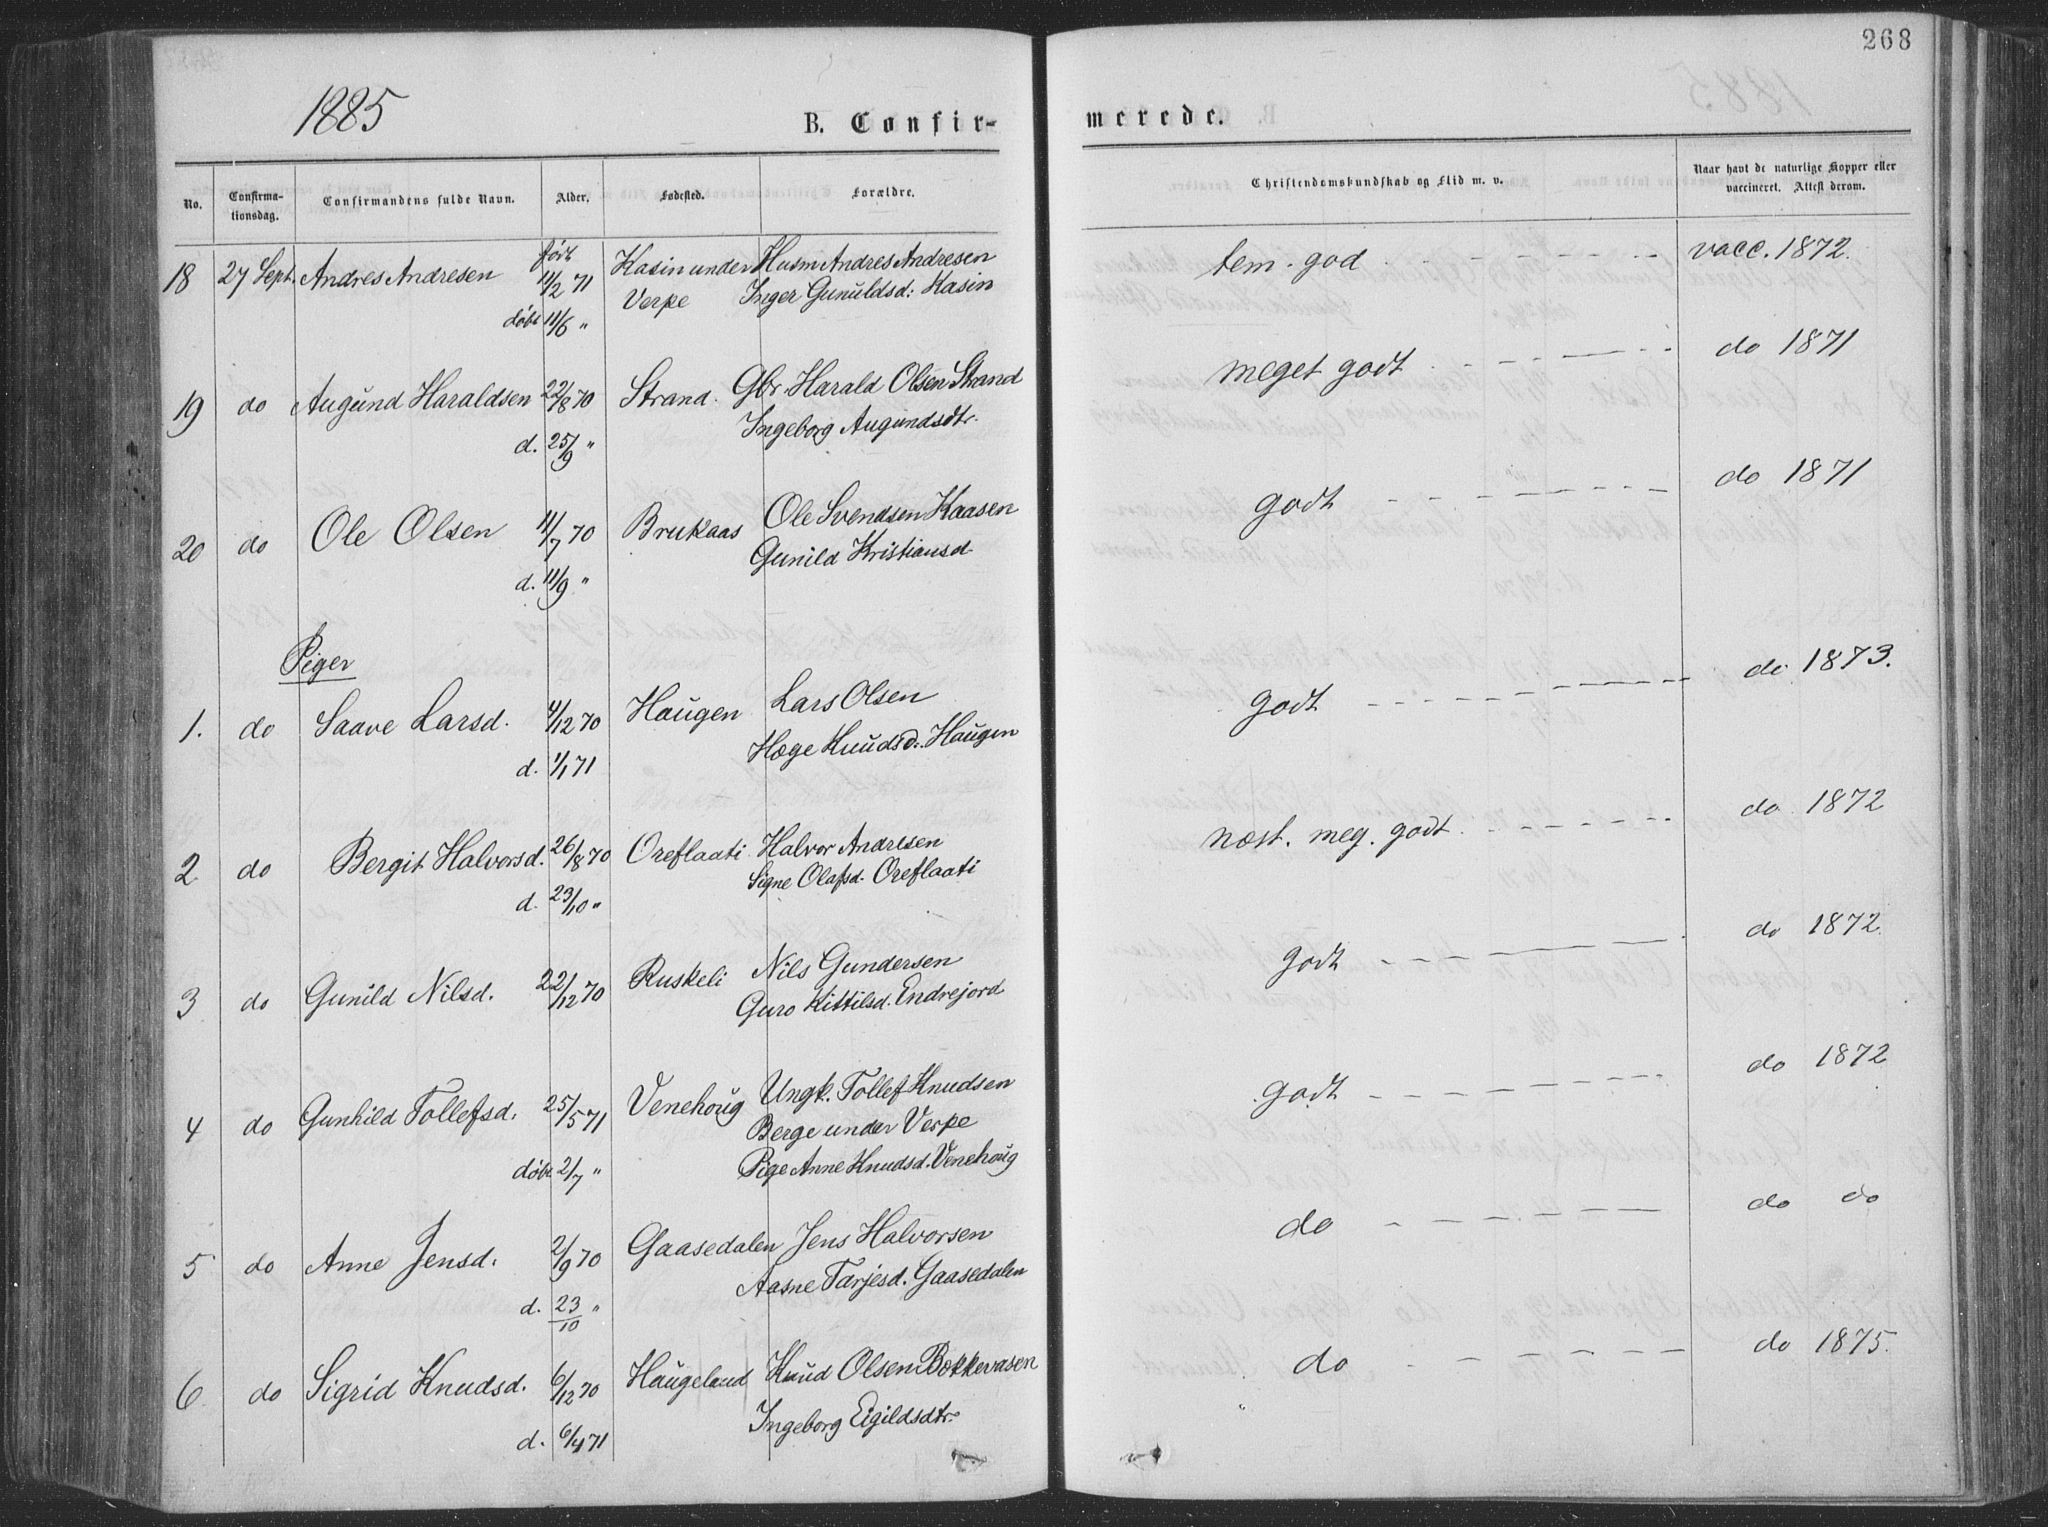 268
1885
B. Confir-
merede.
No.
Confirma-
tionsdag.
Confirmandens fulde Navn.
Alder.
Fødested.
Forældre.
Christendomskundskab og Flid m. v.
Naar havt de naturlige Kopper eller
vaccineret. Attest derom.
18 27 Sept. Andres Andresen født 11/2 71 Kasin under Husm Andres Andresen tem. god vacc. 1872.
døbt 11/6 " Verpe Inger Gunuldsd: Kasin
19 do Augund Haraldsen 22/8 70 Strand. Gbr. Harald Olsen Strand meget godt do 1871
d. 25/9 " Ingeborg Augundsdtr.
20 do Ole Olsen 11/7 70 Brukaas Ole Svendsen Kaasen godt do 1871
d. 11/9 " Gunild Kristiansd.
Piger
1. do Saave Larsd. 4/12 70 Haugen Lars Olsen godt do 1873.
d. 1/1 71 Hæge Knudsd. Haugen
2 do Bergit Halvorsd. 26/8 70 Oreflaati Halvor Andresen næst. meg. godt do 1872
d. 23/10 " Signe Olafsd. Oreflaati
3 do Gunild Nilsd. 22/12 70 Ruskeli Nils Gundersen godt do 1872.
Guro Kittilsd. Endrejord
4 do Gunhild Tollefsd. 25/5 71 Venehoug Ungk. Tollef Knudsen godt do 1872
Berge under Verpe
døbt 2/7 " Pige Anne Knudsd. Venehoug
5 do Anne Jensd. 2/9 70 Gaasedalen Jens Halvorsen do do do
d. 23/10 " Aasne Tarjesd. Gaasedalen
6 do Sigrid Knudsd. 6/12 70 Haugeland Knud Olsen Bokkevasen do do 1875.
d. 6/4 71 Ingeborg Eigildsdtr.